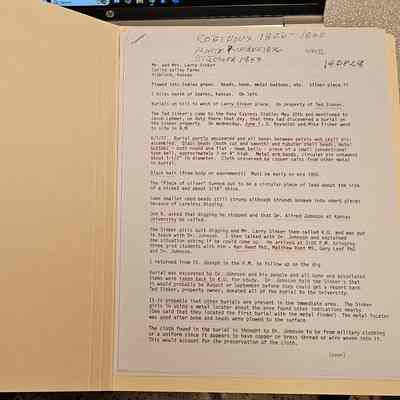 ROBIDOUX 1826-1860
OCTOBER 1859
14DP28
Mr. and Mrs. Larry Sinker
Highland, Kansas
Plowed into Indian grave. Beads, bone, metal buttons, etc. Silver piece ??
3 miles north of Sparks, Kansas. On left
Burials on hill to west of Larry Sinker place. On property of Ted Sinker.
The Ted Sinker's came to the Pony Express Stables May 30th and mentioned to
on duty there that day, that they had discovered a burial on
the Sinker property. On Wednesday, June 1, D. Reynolds and Mike Fisher went
to site in A.M.
6/1/77. Burial partly uncovered and all bones between pelvis and skull dis-
assembled. Glass beads (both cut and smooth) and tubular shell beads. Metal
buttons - both round and flat - hawk bells - piece of a small conventional
type bell, approximately 3 or 4" high. Metal arm bands, circular pin ornament
about 1 1/2" in diameter. Cloth preserved by copper salts from other metal
in burial.
Black hair (from body or adornment) Must be early on era 1800.
The "Piece of silver" turned out to be a circular piece of lead about the size
of a nickel and about 3/16" thick.
Some smaller seed beads still strung although strands broken into short pieces
because of careless digging.
Don R. asked that digging be stopped and that Dr. Alfred Johnson at Kansas
University be called.
The Sinker girls quit digging and Mr. Larry Sinker then called K.U. and was put
in touch with Dr. Johnson. I then talked with Dr. Johnson and explained
the situation asking if he could come up. He arrived at 3:00 P.M. bringing
three grad students with him - Ken Reed PhD, Matthew Root MS, Gary Leaf PhD
and Dr. Johnson.
I returned from St. Joseph in the P.M. to follow up on the dig.
Burial was excavated by Dr. Johnson and his people and all bone and associated
items were taken back to K.U. for study. Dr. Johnson told the Sinker's that
it would probably be August or September before they could get a report back
Ted Sinker, property owner, donated all of the burial to the University.
It is probable that other burials are present in the immediate area. The Sinker
girls in using a metal locator about the area found other indications nearby.
(Dee said that they located the first burial with the metal finder) The metal locator
was used after bone and beads were plowed to the surface.
The cloth found in the burial is thought by Dr. Johnson to be from military clothing
or a uniform since it appears to have copper or brass thread or wire woven into it.
This would account for the preservation of the cloth.
(over)